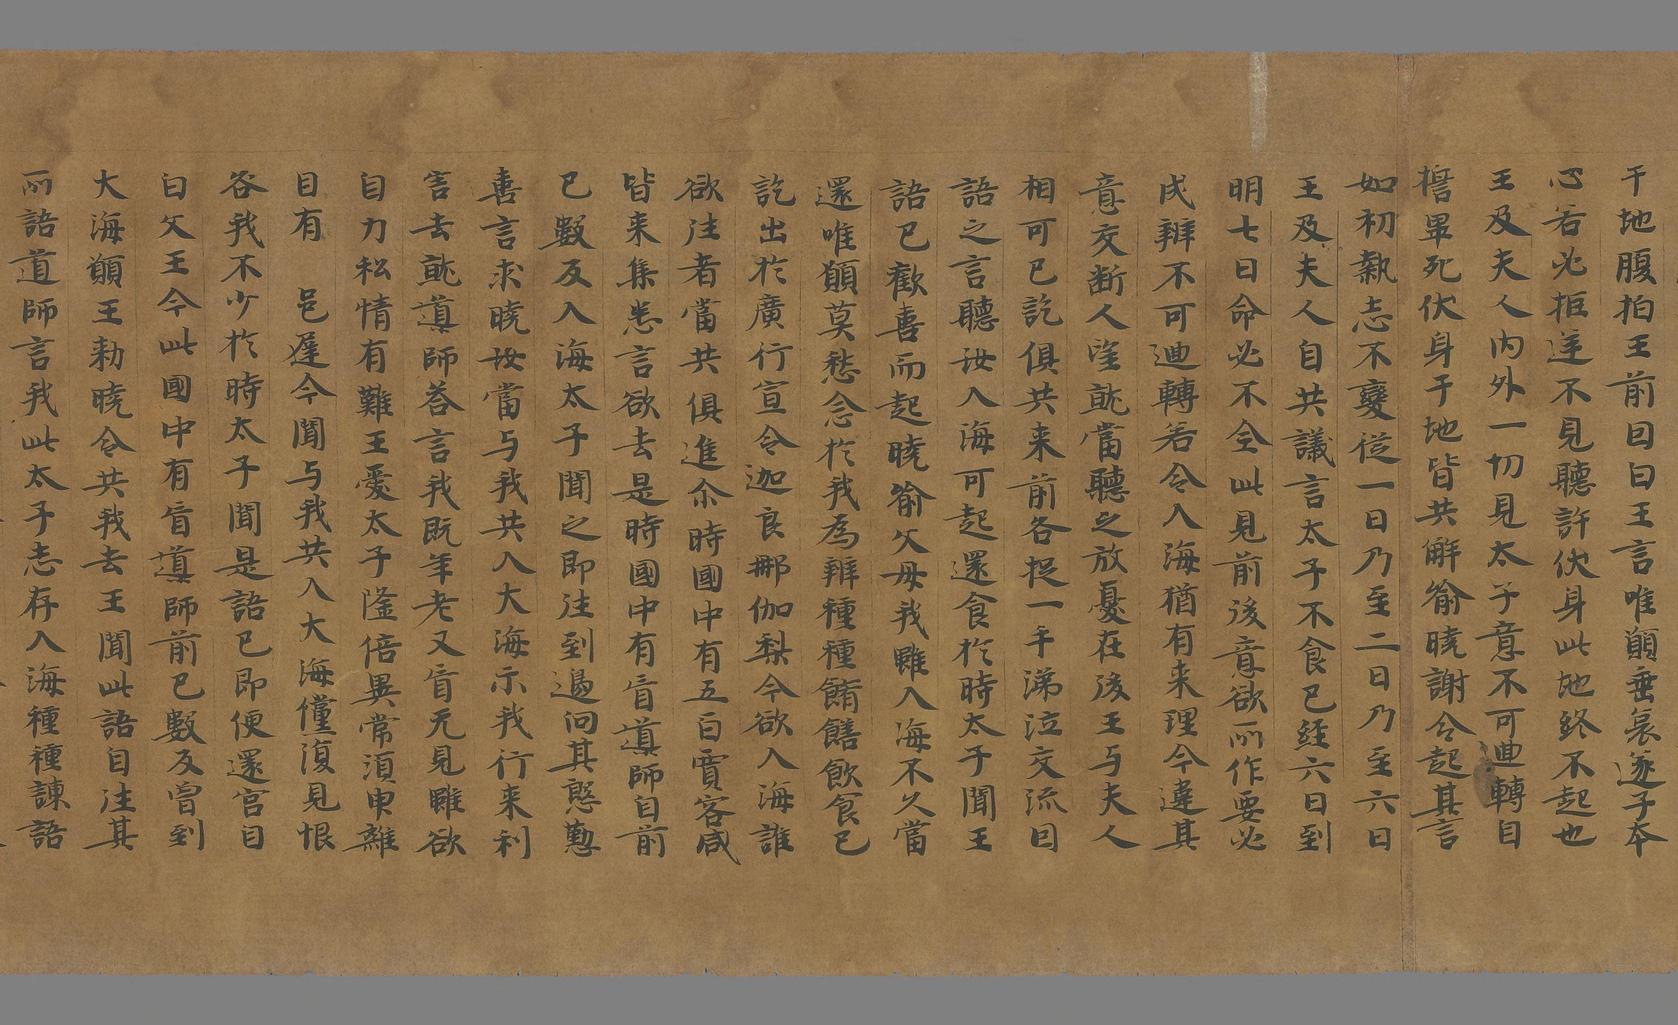 于地腹拍王前因曰王言唯願垂哀遂子本
心若必拒逆不見聽許伏身此地終不起也
王及夫人内外一切見太子意不可迴轉自
擔畢死伏身于地皆共解喻曉謝令起其言
如初執志不變從一日乃至二日乃至六日
王及夫人自共議言太子不食已經六日到
明七日命必不全此見前後意欲所作要必
成辦不可迴轉若令入海猶有来理今違其
意交断人望就當聽之放憂在後王与夫人
相可已訖俱共来前各捉一手涕泣交流曰
語之言聽汝入海可起還食於時太子聞王
語已歡喜而起曉喻父母我雖入海不久當
還唯願莫愁念於我為辦種種餚饍飲食已
訖出於廣行宣令迦良那伽梨今欲入海誰
欲注者當共俱進尒時國中有五百賈客咸
皆来集悉言欲去是時國中有盲導師自前
已數反入海太子聞之即注到邊问其慇懃
善言求曉汝當与我共入大海示我行来利
害去就導師荅言我既年老又盲无見雖欲
自力私情有難王愛太子隆倍異常湏申離
目有邑遲今聞与我共入大海儻復見恨
咎我不少於時太子聞是語已即便還宮自
白父王今此國中有盲導師前已數反曾到
大海願王勑曉令共我去王聞此語自注其
所語道師言我此太子志存入海種種諫語